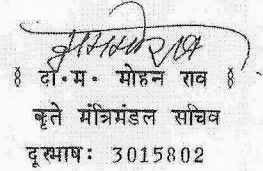 § दा॰म॰ मोहन राव §
कृते मंत्रिमंडल सचिव
दूरभाष: 3015802